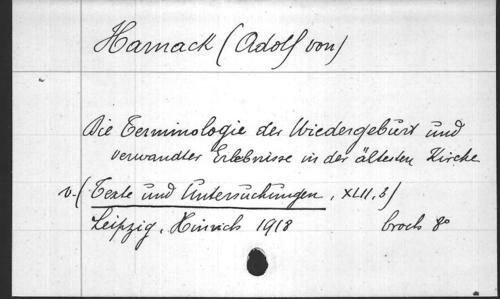 Harnack (Adolf von)
Die Terminologie der Wiedergeburt und
verwandter Erlebnisse in der ältesten Kirche
v. (Texte und Untersuchungen, XLII, 3)
Leipzig, Hinrich 1918 broch 8°